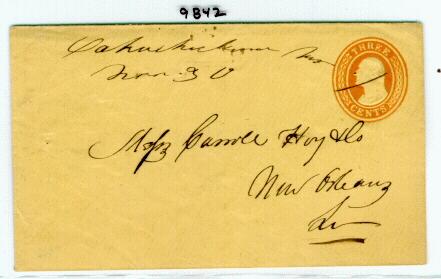 9842
THREE
CENTS
Nov 30
Messrs Carroll Hoy & Co
New Orleans
La